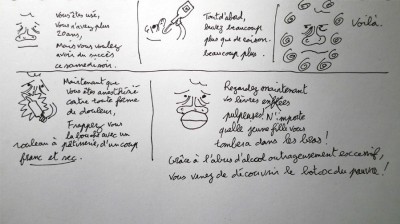 Vous êtes usé,
vous n'avez plus
20 ans,
Mais vous voulez
avoir du succès
ce samedi soir.
Tout d'abord,
buvez beaucoup
plus que de raison.
beaucoup plus.
Voilà.
Maintenant que
vous êtes anesthésié
contre toute forme
de douleur,
Frappez vous
la bouche avec un
rouleau à pâtisserie, d'un coup
franc et sec.
Regardez maintenant
vos lèvres
pulpeuses! N'importe
quelle jeune fille vous
tombera dans les bras!
Grâce à l'abus d'alcool outrageusement excessif,
vous venez de découvrir le botox du pauvre!